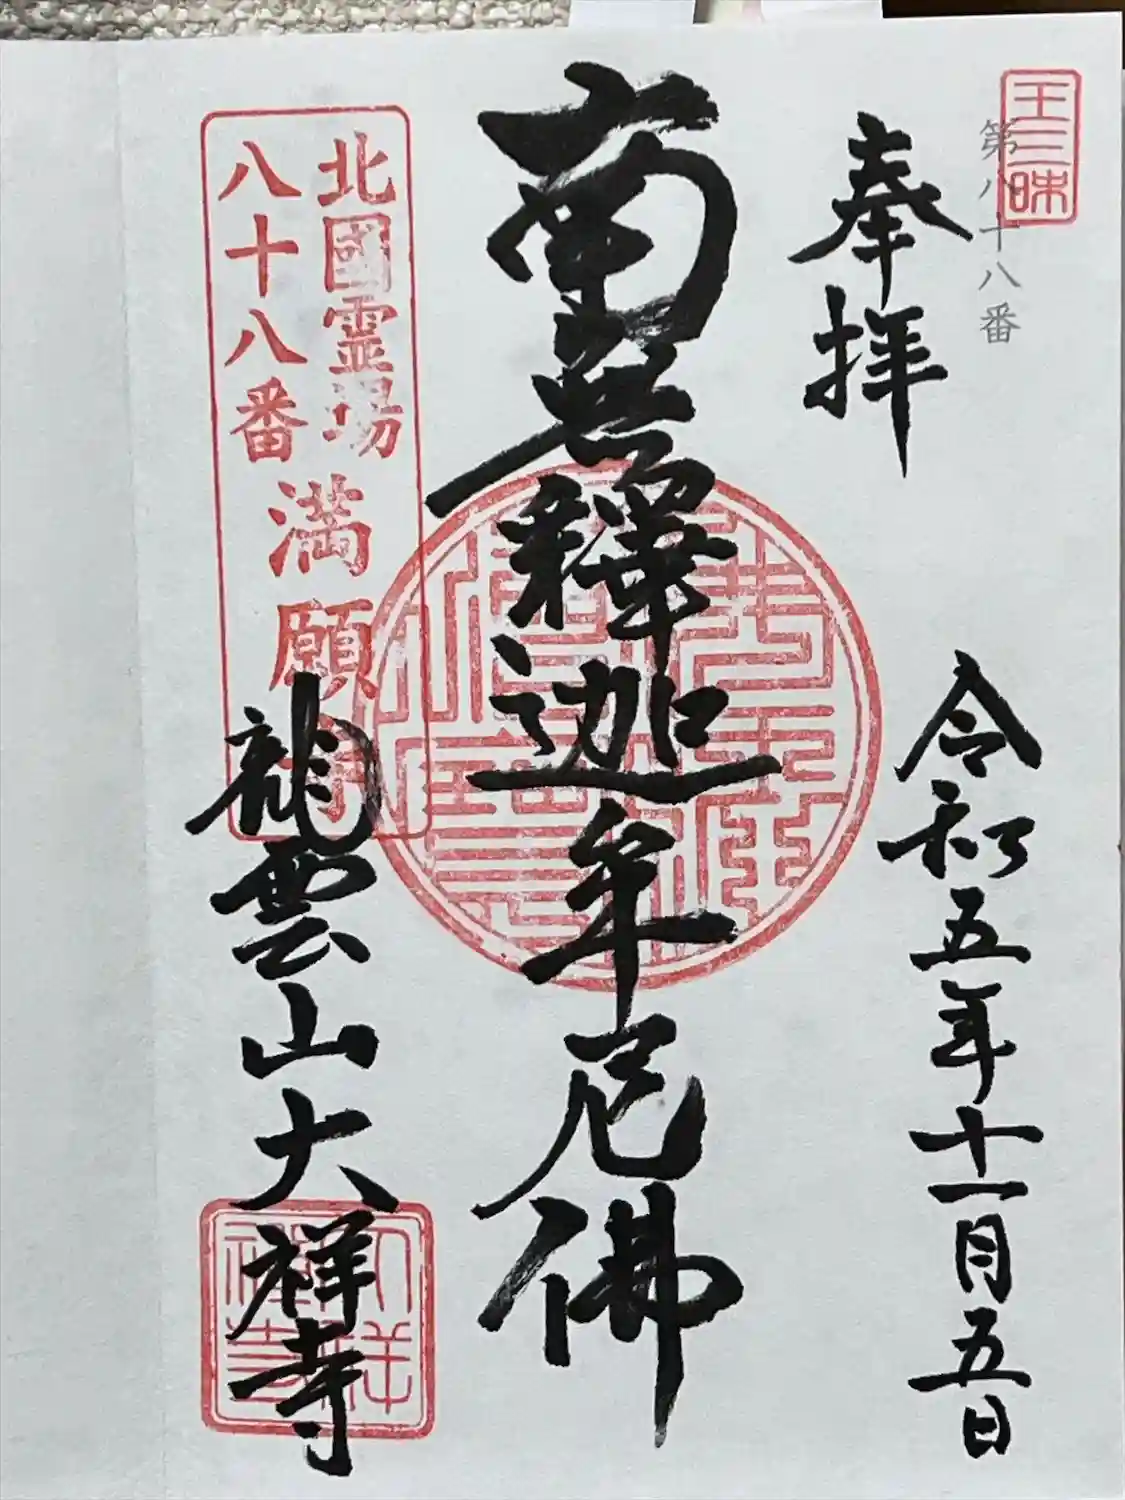 王三昧
第八十八番
奉拝
令和五年十一月五日
南無釋迦牟尼佛
北國霊場
八十八番
満願寺
龍雲山大祥寺
大祥禅寺